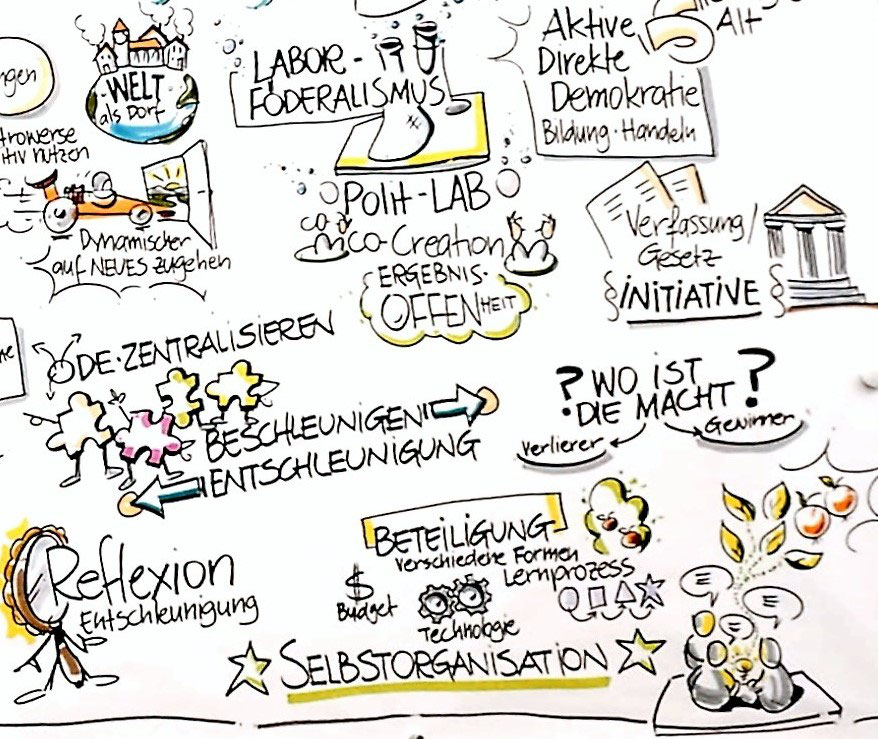 ngen
WELT
als Dorf
trowerse
itiv nutzen
Dynamischer
auf NEUES zugehen
LABOR-
FÖDERALISMUS
POlit-LAB
CO-Creation
ERGEBNIS-
OFFENHEIT
Aktive
Direkte
Demokratie
Bildung·Handeln
Alt
Verfassung/
Gesetz
§INITIATIVE§
DE·ZENTRALISIEREN
BESCHLEUNIGEN
ENTSCHLEUNIGUNG
?WO IST
DIE MACHT?
Verlierer
Gewinner
Reflexion
Entschleunigung
BETEILIGUNG
Verschiedene Formen
Lernprozess
$
Budget
Technologie
SELBSTORGANISATION